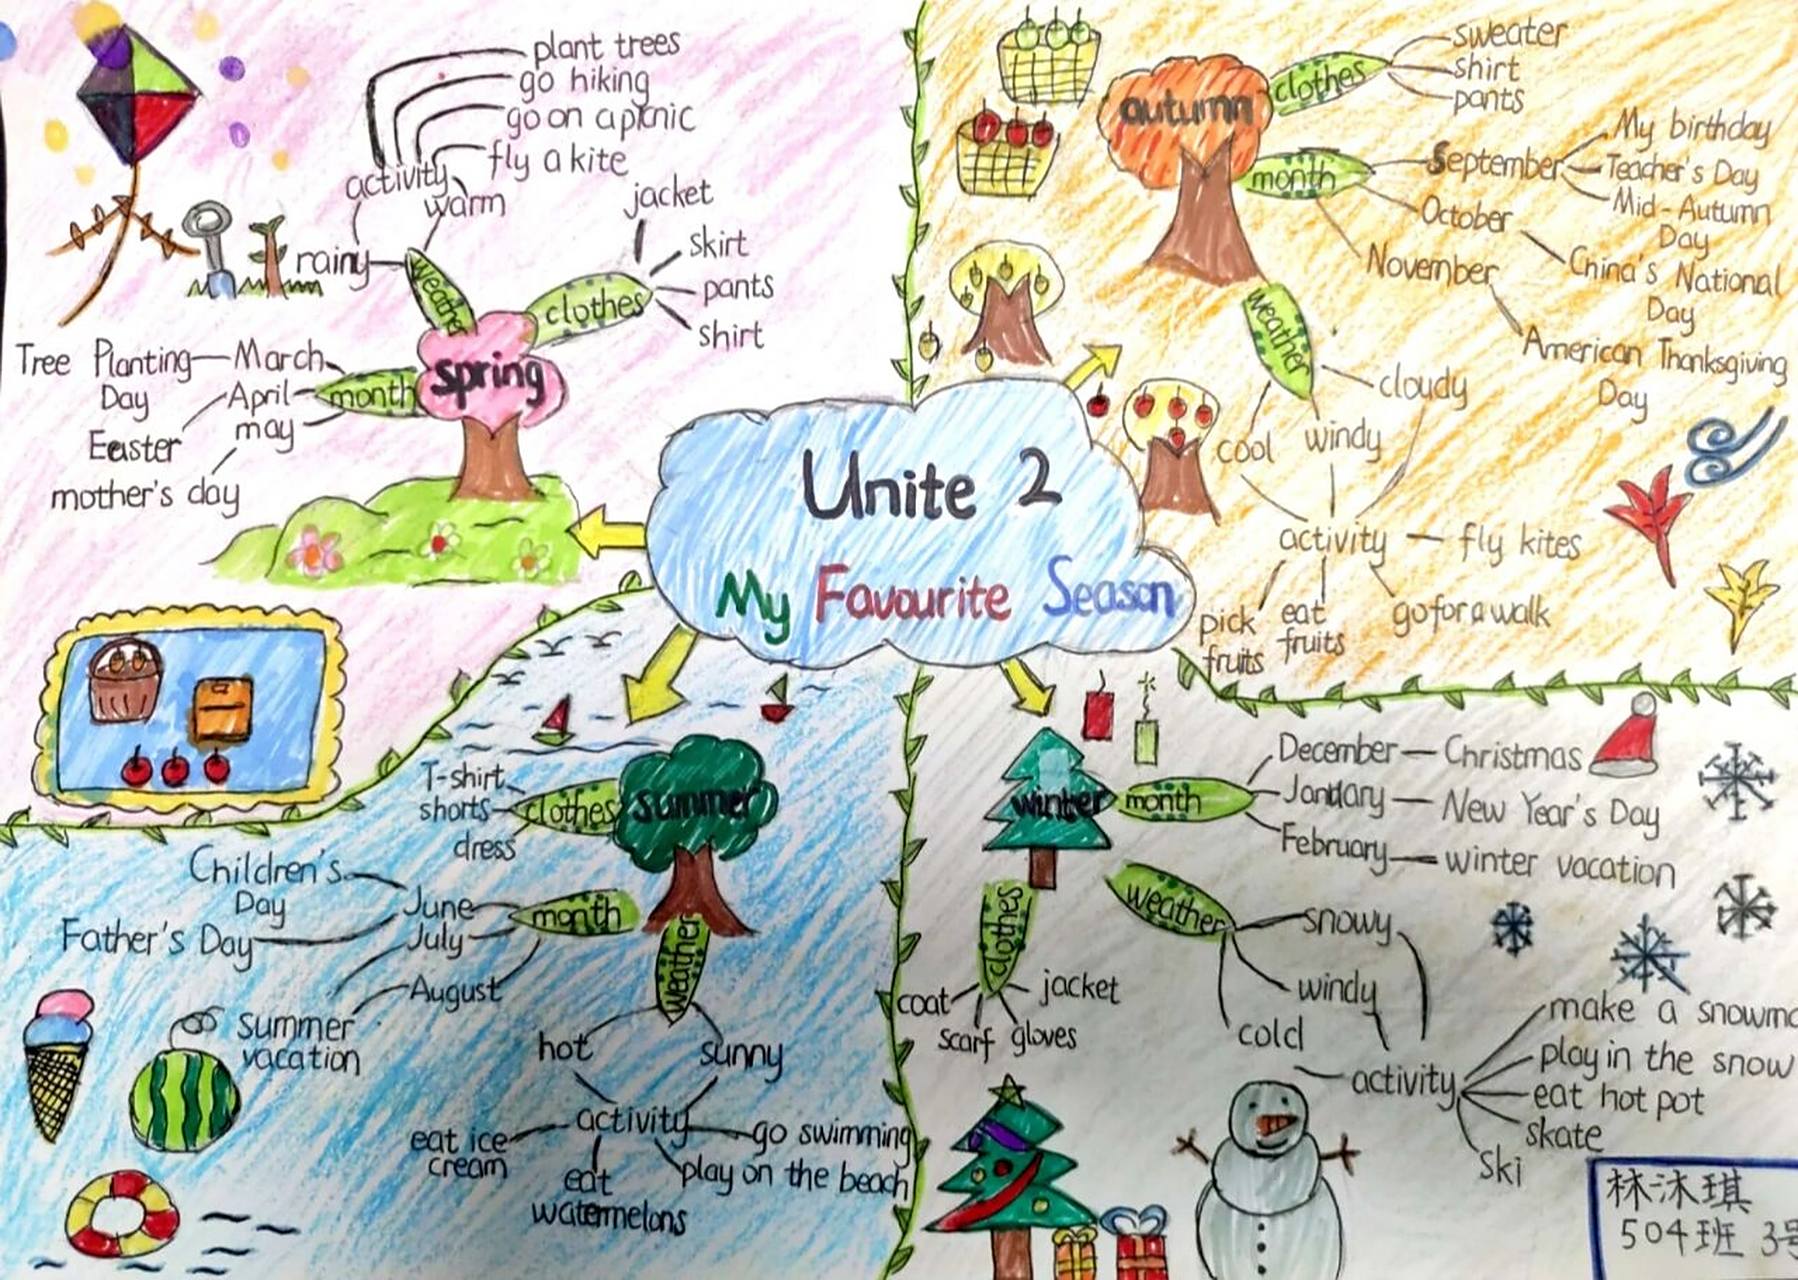 Unite 2
My Favourite Season
plant trees
go hiking
go on a picnic
fly a kite
activity
warm
rainy
weather
jacket
skirt
pants
shirt
clothes
spring
month
Tree Planting
Day
March
April
may
Easter
mother's day
autumn
clothes
sweater
shirt
pants
month
September
My birthday
Teacher's Day
Mid-Autumn
Day
October
China's National
Day
November
American Thanksgiving
Day
weather
cloudy
cool
windy
activity
fly kites
pick
fruits
eat
fruits
go for a walk
summer
clothes
T-shirt
shorts
dress
month
June
July
August
Children's
Day
Father's Day
summer
vacation
weather
hot
sunny
activity
eat ice
cream
eat
watermelons
go swimming
play on the beach
winter
month
December
Christmas
January
New Year's Day
February
winter vacation
weather
snowy
windy
cold
clothes
coat
scarf
gloves
jacket
activity
make a snowma
play in the snow
eat hot pot
skate
ski
林沐琪
504班 3号